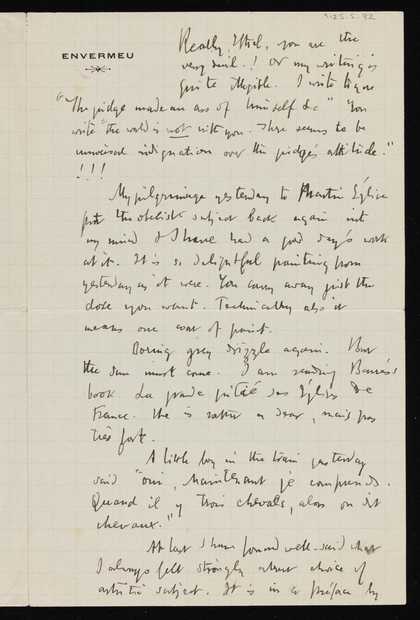 1-25.5.92
ENVERMEU
Really, Ethel, you are the
very devil.! Or my writing is
quite illegible. I write to you
"The judge made an ass of himself &c" You
write "the world is not with you. There seems to be
universal indignation over the judge's attitude."
!!!
My pilgrimage yesterday to Martin Église
put the obelisk subject back again into
my mind & I have had a good day's work
at it. It is so delightful painting from
yesterday as it were. You carry away just the
dose you want. Technically also it
means one coat of paint.
Boring grey drizzle again. But
the sun must come. I am reading Barrès's
book La grande pitié des Églises de
France. He is rather a dear, mais pas
très fort.
A little boy in the train yesterday
said "oui, maintenant je comprends.
Quand il y trois chevals, alors on dit
chevaux."
At last I have found well-said what
I always felt strongly about choice of
artistic subject. It is in a préface by